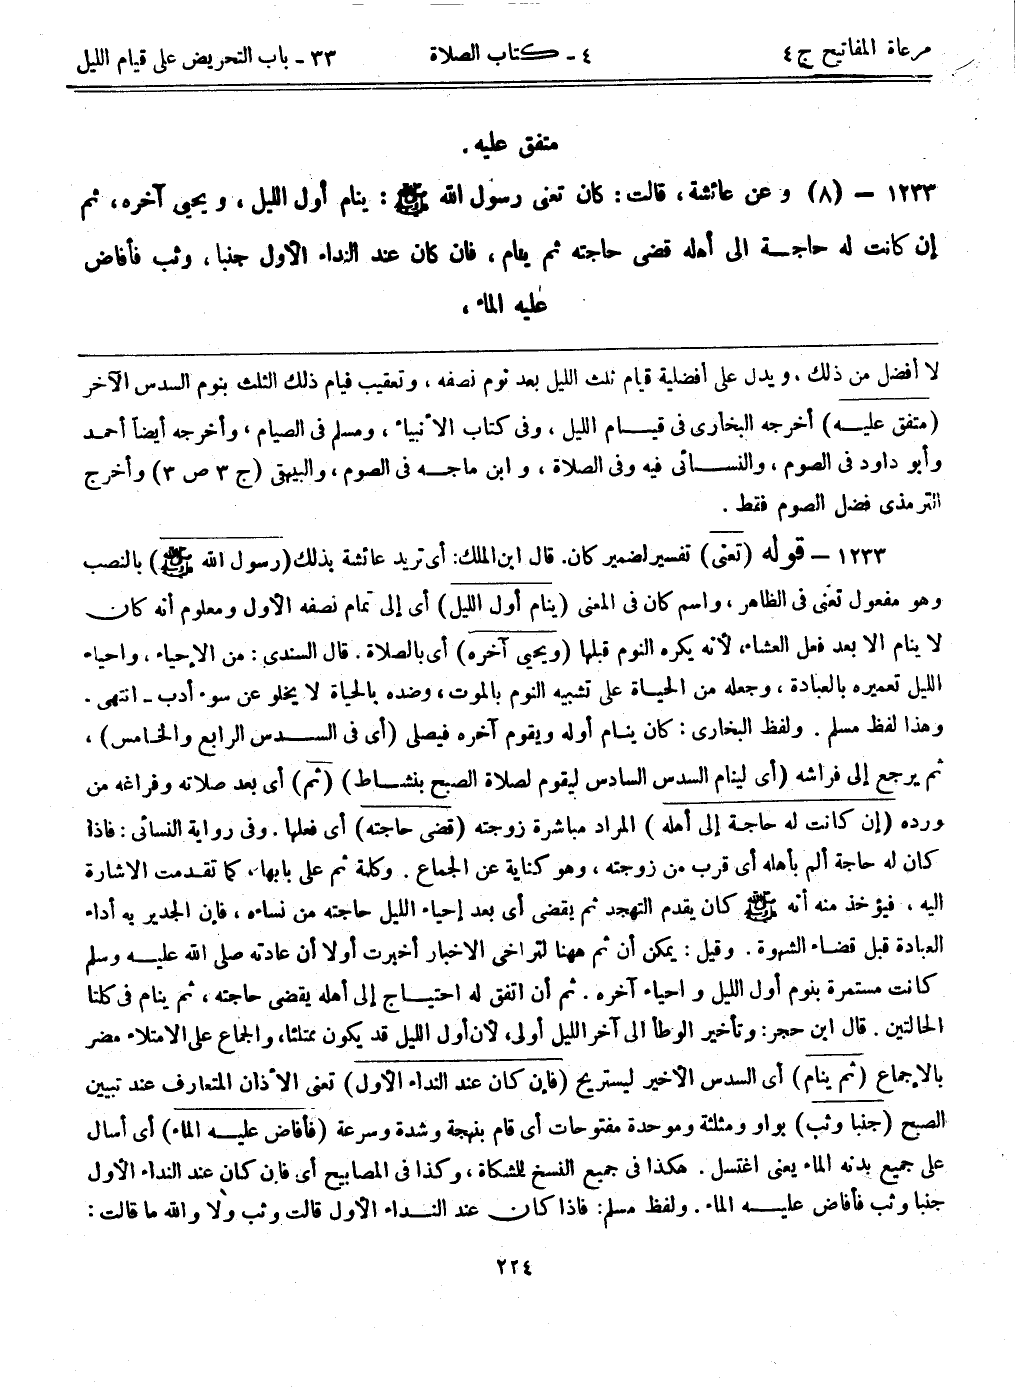 مرعاة المفاتيح ج ٤
٤ - كتاب الصلاة
٣٣ - باب التحريض على قيام الليل
متفق عليه .
١٢٣٣ - (٨) و عن عائشة ، قالت : كان تعنى رسول الله ﷺ : ينام أول الليل ، و يحيى آخره ، ثم
إن كانت له حاجة الى أهله قضى حاجته ثم ينام ، فان كان عند النداء الأول جنبا ، وثب فأفاض
عليه الماء ،
لا أفضل من ذلك . و يدل على أفضلية قيام ثلث الليل بعد نوم نصفه ، وتعقيب قيام ذلك الثلث بنوم السدس الآخر
(متفق عليه) أخرجه البخارى فى قيام الليل ، وفى كتاب الأنبياء ، ومسلم فى الصيام ، وأخرجه أيضاً أحمد
وأبو داود فى الصوم ، والنسائى فيه وفى الصلاة ، و ابن ماجه فى الصوم ، والبيهقى (ج ٣ ص ٣) وأخرج
الترمذى فضل الصوم فقط .
١٢٣٣ - قوله (تعنى) تفسير لضمير كان. قال ابن الملك: أى تريد عائشة بذلك (رسول الله ﷺ) بالنصب
وهو مفعول تعنى فى الظاهر ، واسم كان فى المعنى (ينام أول الليل) أى إلى تمام نصفه الأول ومعلوم أنه كان
لا ينام الا بعد فعل العشاء، لأنه يكره النوم قبلها (ويحيى آخره) أى بالصلاة . قال السندى : من الإحياء ، واحياء
الليل تعميره بالعبادة ، وجعله من الحياة على تشبيه النوم بالموت، وضده بالحياة لا يخلو عن سوء أدب - انتهى .
وهذا لفظ مسلم . ولفظ البخارى : كان ينام أوله ويقوم آخره فيصلى (أى فى السدس الرابع والخامس) ،
ثم يرجع إلى فراشه (أى لينام السدس السادس ليقوم لصلاة الصبح بنشاط) (ثم) أى بعد صلاته وفراغه من
ورده (إن كانت له حاجة إلى أهله) المراد مباشرة زوجته (قضى حاجته) أى فعلها . وفى رواية النسائى : فاذا
كان له حاجة ألم بأهله أى قرب من زوجته ، وهو كناية عن الجماع . وكلمة ثم على بابها، كما تقدمت الاشارة
اليه ، فيؤخذ منه أنه ﷺ كان يقدم التهجد ثم يقضى أى بعد إحياء الليل حاجته من نساءه ، فإن الجدير به أداء
العبادة قبل قضاء الشهوة . وقيل : يمكن أن ثم ههنا لتراخى الاخبار أخبرت أولا أن عادته صلى الله عليه وسلم
كانت مستمرة بنوم أول الليل و احياء آخره . ثم أن اتفق له احتياج إلى أهله يقضى حاجته ، ثم ينام فى كلتا
الحالتين . قال ابن حجر: وتأخير الوطأ الى آخر الليل أولى، لأن أول الليل قد يكون ممتلئا، والجماع على الامتلاء مضر
بالإجماع (ثم ينام) أى السدس الأخير ليستريح (فإن كان عند النداء الأول) تعنى الأذان المتعارف عند تبيين
الصبح (جنبا وثب) بواو ومثلثة وموحدة مفتوحات أى قام بنهجة وشدة وسرعة (فأفاض عليه الماء) أى أسال
على جميع بدنه الماء يعنى اغتسل . هكذا فى جميع النسخ للشكاة ، وكذا فى المصابيح أى فان كان عند النداء الأول
جنبا وثب فأفاض عليه الماء . ولفظ مسلم: فاذا كان عند النداء الأول قالت وثب ولا والله ما قالت :
٢٢٤